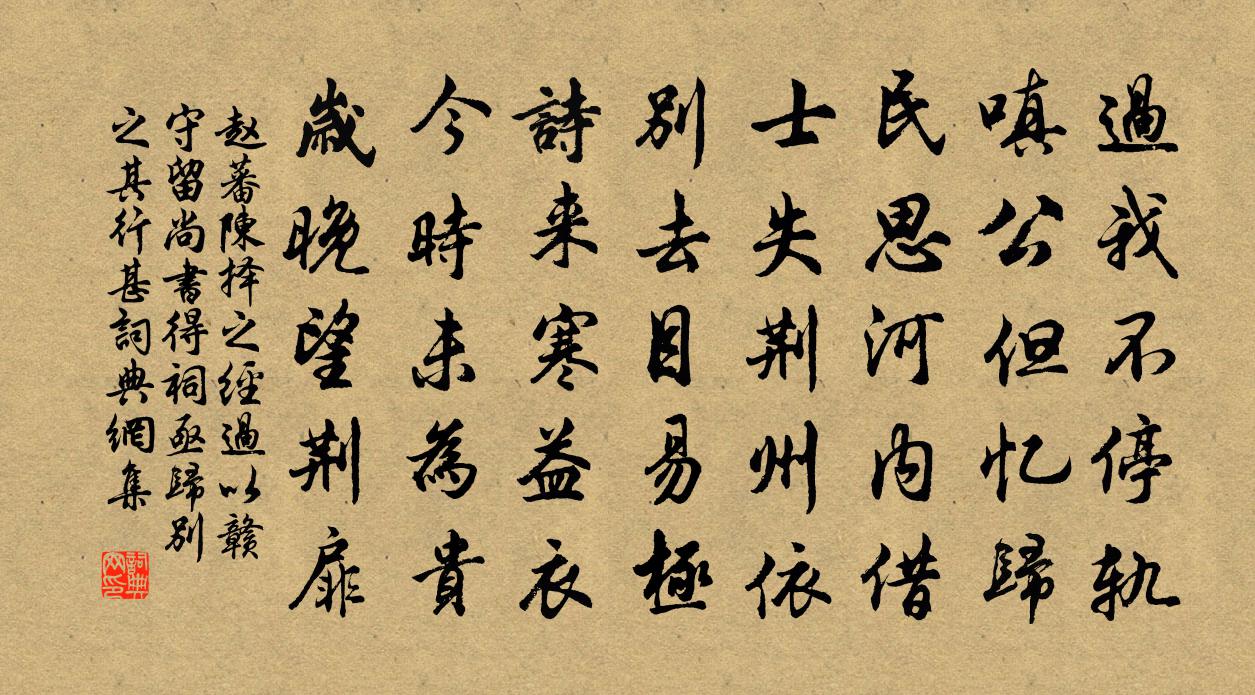 過我不停軌
嗔公但忆歸
民思河内借
士失荆州依
別去目易極
詩来寒益衣
今時未為貴
歳晚望荆扉
赵蕃陳择之經過以贛
守留尚書得祠亟歸別
之其行甚詞典網集
詞典
网印